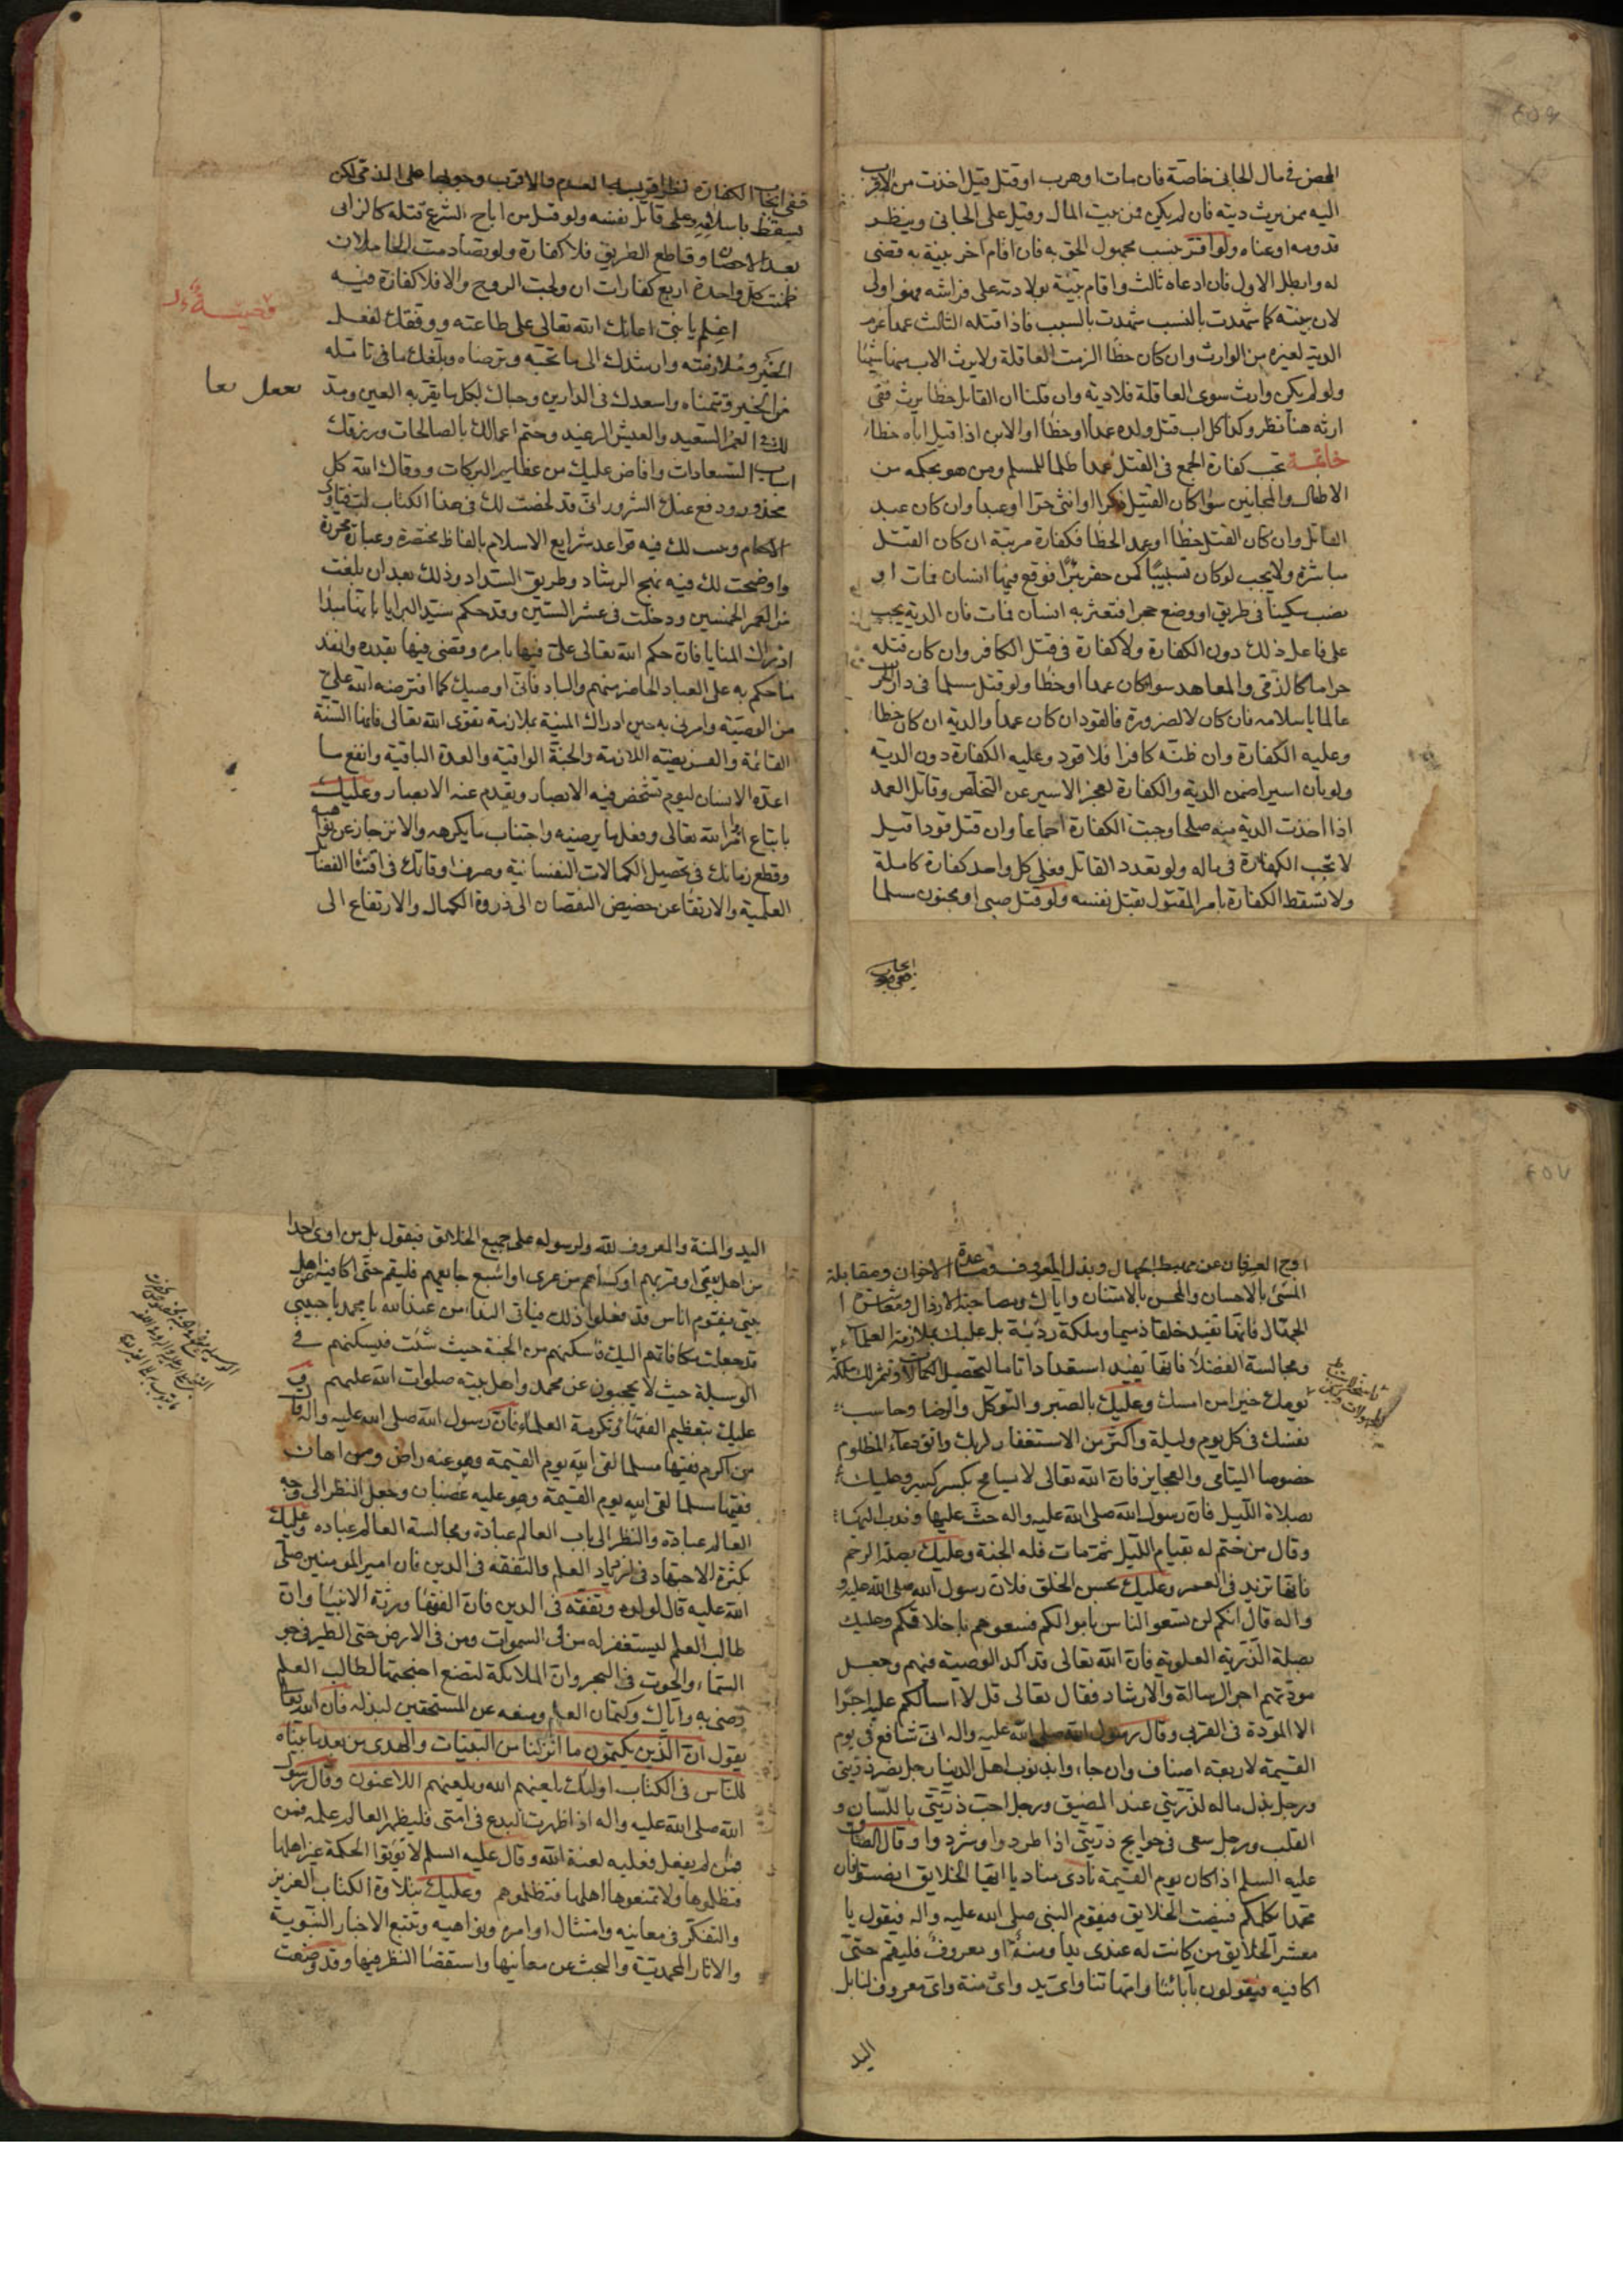 المحض في مال الجاني خاصة فان مات او هرب او قتل قيل اخذت من الاقرب
اليه ممن يرث ديته فان لم يكن فمن بيت المال وقيل على الجاني وينظر
قدومه او غناه ولو اقر بنسب مجهول الحق به فان اقام آخر بينة به قضى
له وابطل الاول فان ادعاه ثالث واقام بينة بولادته على فراشه فهو اولى
لان بينته كما شهدت بالنسب شهدت بالسبب فاذا قتله الثالث عمدا غرم
الدية لغيره من الوارث وان كان خطأ الزمت العاقلة ولا يرث الاب منها شيئا
ولو لم يكن وارث سوى العاقلة فلا دية وان قلنا ان القاتل خطأ يرث ففي
ارثه هنا نظر وكذا كل اب قتل ولده عمدا او خطأ او الابن اذا قتل اباه خطأ
خاتمة تجب كفارة الجمع في القتل عمدا ظلما للمسلم ومن هو بحكمه من
الاطفال والمجانين سواء كان القتيل ذكرا او انثى حرا او عبدا وان كان عبد
القاتل وان كان القتل خطأ او عمد الخطأ فكفارة مرتبة ان كان القتل
مباشرة ولا يجب لو كان تسبيبا كمن حفر بئرا فوقع فيها انسان فمات او
نصب سكينا في طريق او وضع حجرا فتعثر به انسان فمات فان الدية يجب
على فاعل ذلك دون الكفارة ولا كفارة في قتل الكافر وان كان قتله
حراما كالذمي والمعاهد سواء كان عمدا او خطأ ولو قتل مسلما في دار الحرب
عالما باسلامه فان كان لا لضرورة فالقود ان كان عمدا والدية ان كان خطأ
وعليه الكفارة وان ظنه كافرا فلا قود وعليه الكفارة دون الدية
ولو بان اسيرا ضمن الدية والكفارة لعجز الاسير عن التخلص وقاتل العمد
اذا اخذت الدية منه صلحا وجبت الكفارة اجماعا وان قتل قودا قيل
لا تجب الكفارة في ماله ولو تعدد القاتل فعلى كل واحد كفارة كاملة
ولا تسقط الكفارة بامر المقتول بقتل نفسه ولو قتل صبي او مجنون مسلما
ففي ايجاب الكفارة نظر اقربه العدم والاقرب وجوبها على الذمي لكن
يسقط باسلامه وعلى قاتل نفسه ولو قتل من اباح الشرع قتله كالزاني
بعد الاحصان وقاطع الطريق فلا كفارة ولو تصادمت الحاملان
ضمنت كل واحدة اربع كفارات ان ولجت الروح والا فلا كفارة فيه
وصية
اعلم يا بني اعانك الله تعالى على طاعته ووفقك لفعل
الخير وملازمته وارشدك الى ما تحبه وترضاه وبلغك ما في تامله
من الخير وتتمناه واسعدك في الدارين وحباك بكل ما يقر به العين ومد
لك في العمر السعيد والعيش الرغيد وختم اعمالك بالصالحات ورزقك
اسباب السعادات وافاض عليك من عظايم البركات ووقاك الله كل
محذور ودفع عنك الشرور اني قد لخصت لك في هذا الكتاب لب فتاوى
الاحكام وبينت لك فيه قواعد شرايع الاسلام بالفاظ مختصرة وعبارة محررة
واوضحت لك فيه نهج الرشاد وطريق السداد وذلك بعد ان بلغت
من العمر الخمسين ودخلت في عشر الستين وقد حكم سيد البرايا بانها مبدا
اعتراك المنايا فان حكم الله تعالى علي فيها بامره وقضى فيها بقدره وانفذ
ما حكم به على العباد الحاضر منهم والباد فاني اوصيك كما افترضه الله علي
من الوصية وامرني به حين ادراك المنية بملازمة تقوى الله تعالى فانها السنة
القائمة والفريضة اللازمة والجنة الواقية والعدة الباقية وانفع ما
اعده الانسان ليوم تشخص فيه الابصار ويعدم عنه الانصار وعليك
باتباع اوامر الله تعالى وفعل ما يرضيه واجتناب ما يكرهه والانزجار عن نواهيه
وقطع زمانك في تحصيل الكمالات النفسانية وصرف اوقاتك في اقتناء الفضائل
العلمية والارتقاء عن حضيض النقصان الى ذروة الكمال والارتفاع الى
اوج العرفان عن مهبط الجهال وبذل المعروف ومساعدة الاخوان ومقابلة
المسيء بالاحسان والمحسن بالامتنان واياك ومصاحبة الارذال ومعاشرة
الجهال فانها تفيد خلقا ذميما وملكة ردية بل عليك بملازمة العلماء
ومجالسة الفضلاء فانها تفيد استعدادا تاما لتحصيل الكمالات وتثمر لك ملكة
يومك خيرا من امسك وعليك بالصبر والتوكل والرضا وحاسب
نفسك في كل يوم وليلة واكثر من الاستغفار لربك واتق دعاء المظلوم
خصوصا اليتامى والعجايز فان الله تعالى لا يسامح بكسر كسير وعليك
بصلاة الليل فان رسول الله صلى الله عليه واله حث عليها وندب اليها
وقال من ختم له بقيام الليل ثم مات فله الجنة وعليك بصلة الرحم
فانها تزيد في العمر وعليك بحسن الخلق فلان رسول الله صلى الله عليه و
واله قال انكم لن تسعوا الناس باموالكم فسعوهم باخلاقكم وعليك
بصلة الذرية العلوية فان الله تعالى قد اكد الوصية فيهم وجعل
مودتهم اجر الرسالة والارشاد فقال تعالى قل لا اسالكم عليه اجرا
الا المودة في القربى وقال رسول الله صلى الله عليه واله اني شافع في يوم
القيمة لاربعة اصناف وان جاءوا بذنوب اهل الدنيا رجل نصر ذريتي
ورجل بذل ماله لذريتي عند المضيق ورجل احب ذريتي باللسان و
القلب ورجل سعى في حوايج ذريتي اذا طردوا وشردوا وقال الصادق
عليه السلم اذا كان يوم القيمة نادى مناد يا ايها الخلايق انصتوا فان
محمدا يكلمكم فينصت الخلايق فيقوم النبي صلى الله عليه واله فيقول يا
معشر الخلايق من كانت له عندي يد او منة او معروف فليقم حتى
اكافيه فيقولون بآبائنا وامهاتنا واي يد واي منة واي معروف لنا بل
اليد
اليد والمنة والمعروف لله ولرسوله على جميع الخلائق فيقول بل من اوى احدا
من اهل بيتي او برهم او كساهم من عرى او اشبع جايعهم فليقم حتى اكافيه
فيقوم اناس قد فعلوا ذلك فياتي النداء من عند الله يا محمد يا حبيبي
قد جعلت مكافاتهم اليك فاسكنهم من الجنة حيث شئت فيسكنهم في
الوسيلة حيث لا يحجبون عن محمد واهل بيته صلوات الله عليهم و
عليك بتعظيم الفقهاء وتكرمة العلماء فان رسول الله صلى الله عليه واله قال
من اكرم فقيها مسلما لقى الله يوم القيمة وهو عنه راض ومن اهان
فقيها مسلما لقى الله يوم القيمة وهو عليه غضبان وجعل النظر الى وجه
العالم عبادة والنظر الى باب العالم عبادة ومجالسة العالم عباده وعليك
بكثرة الاجتهاد في ازدياد العلم والتفقه في الدين فان امير المومنين صلى
الله عليه قال لولده وتفقه في الدين فان الفقهاء ورثة الانبياء وان
طالب العلم ليستغفر له من في السموات ومن في الارض حتى الطير في جو
السماء والحوت في البحر وان الملائكة لتضع اجنحتها لطالب العلم
رضى به واياك وكتمان العلم ومنعه عن المستحقين لبذله فان الله تعالى
يقول ان الذين يكتمون ما انزلنا من البينات والهدى من بعد ما بيناه
للناس في الكتاب اولئك يلعنهم الله ويلعنهم اللاعنون وقال رسول
الله صلى الله عليه واله اذا ظهرت البدع في امتي فليظهر العالم علمه فمن
لم يفعل فعليه لعنة الله وقال عليه السلم لا توتوا الحكمة غير اهلها
فتظلموها ولا تمنعوها اهلها فتظلموهم وعليك بتلاوة الكتاب العزيز
والتفكر في معانيه وامتثال اوامره ونواهيه وتتبع الاخبار النبوية
والاثار المحمدية والبحث عن معانيها واستقصاء النظر فيها وقد وضعت